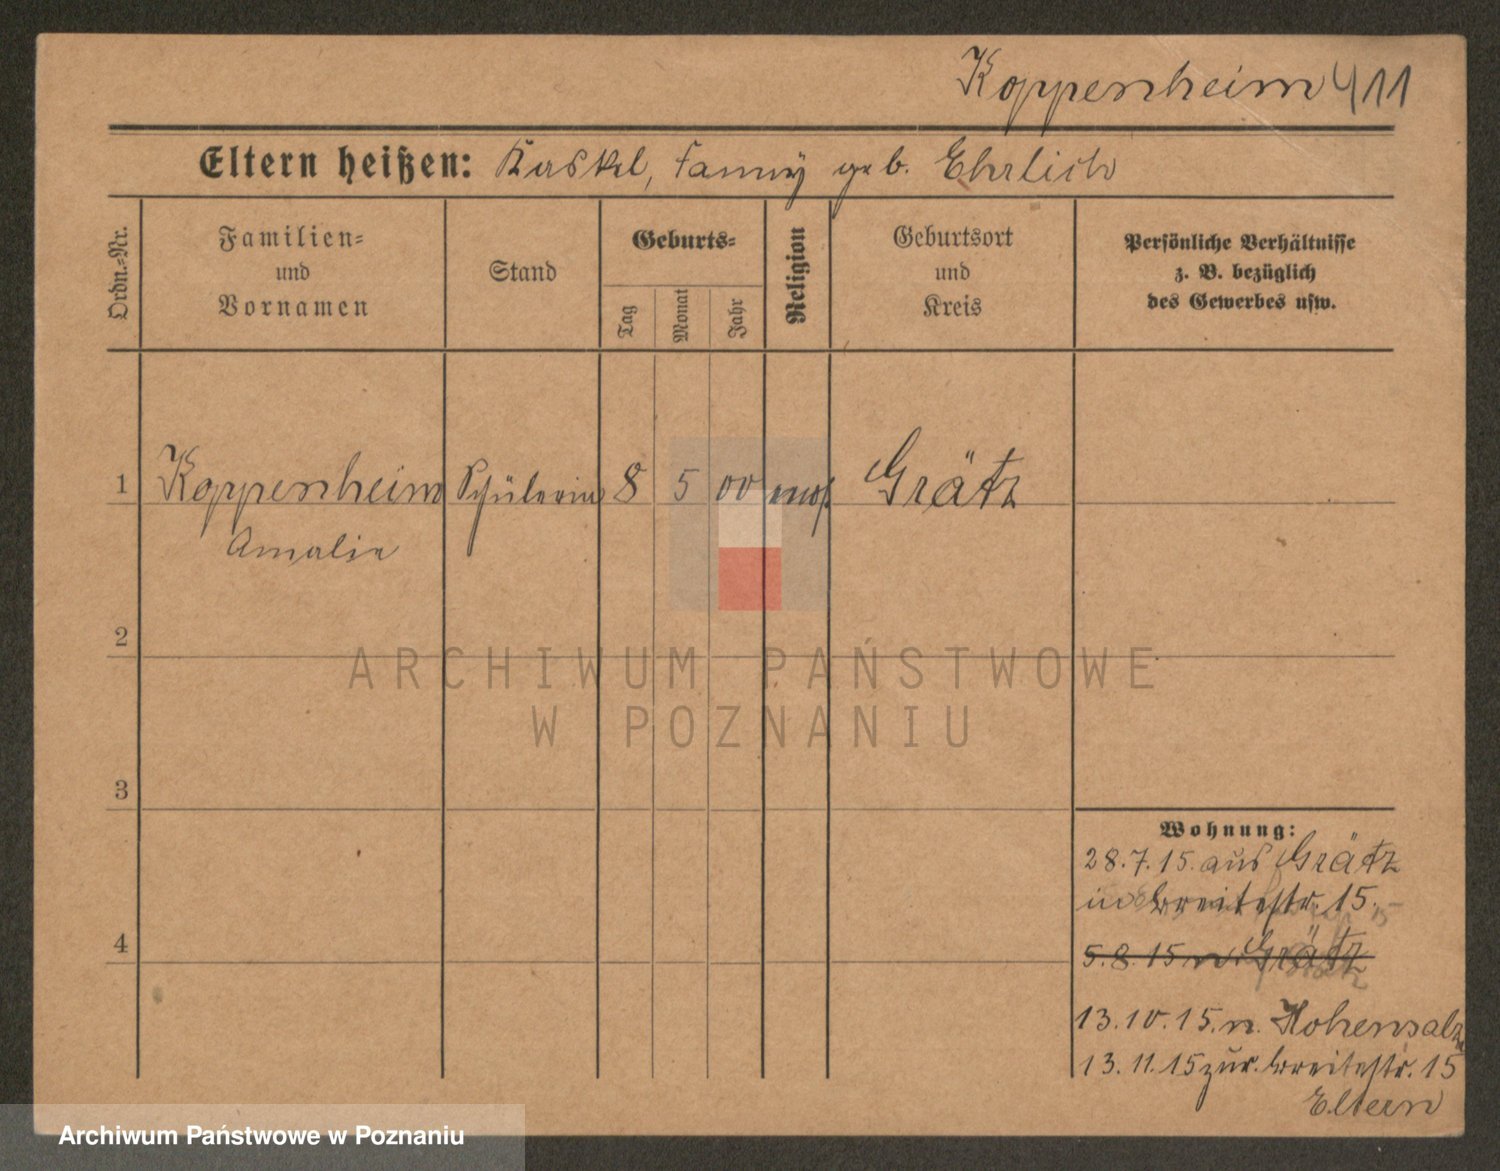 Koppenheim 411
Eltern heißen: Kaskel, Fanny geb. Ehrlich
Ordn.-Nr.
Familien-
und
Vornamen
Stand
Geburts-
Tag
Monat
Jahr
Religion
Geburtsort
und
Kreis
Persönliche Verhältnisse
z. B. bezüglich
des Gewerbes usw.
1 Koppenheim Schülerin 8 5 00 mos. Grätz
Amalie
2
ARCHIWUM PAŃSTWOWE
W POZNANIU
3
Wohnung:
28.7.15. aus Grätz
in Breitestr. 15.
4
5.8.15 n. Grätz
13.10.15. n. Hohensalza
13.11.15 zur. Breitestr. 15
Eltern
Archiwum Państwowe w Poznaniu